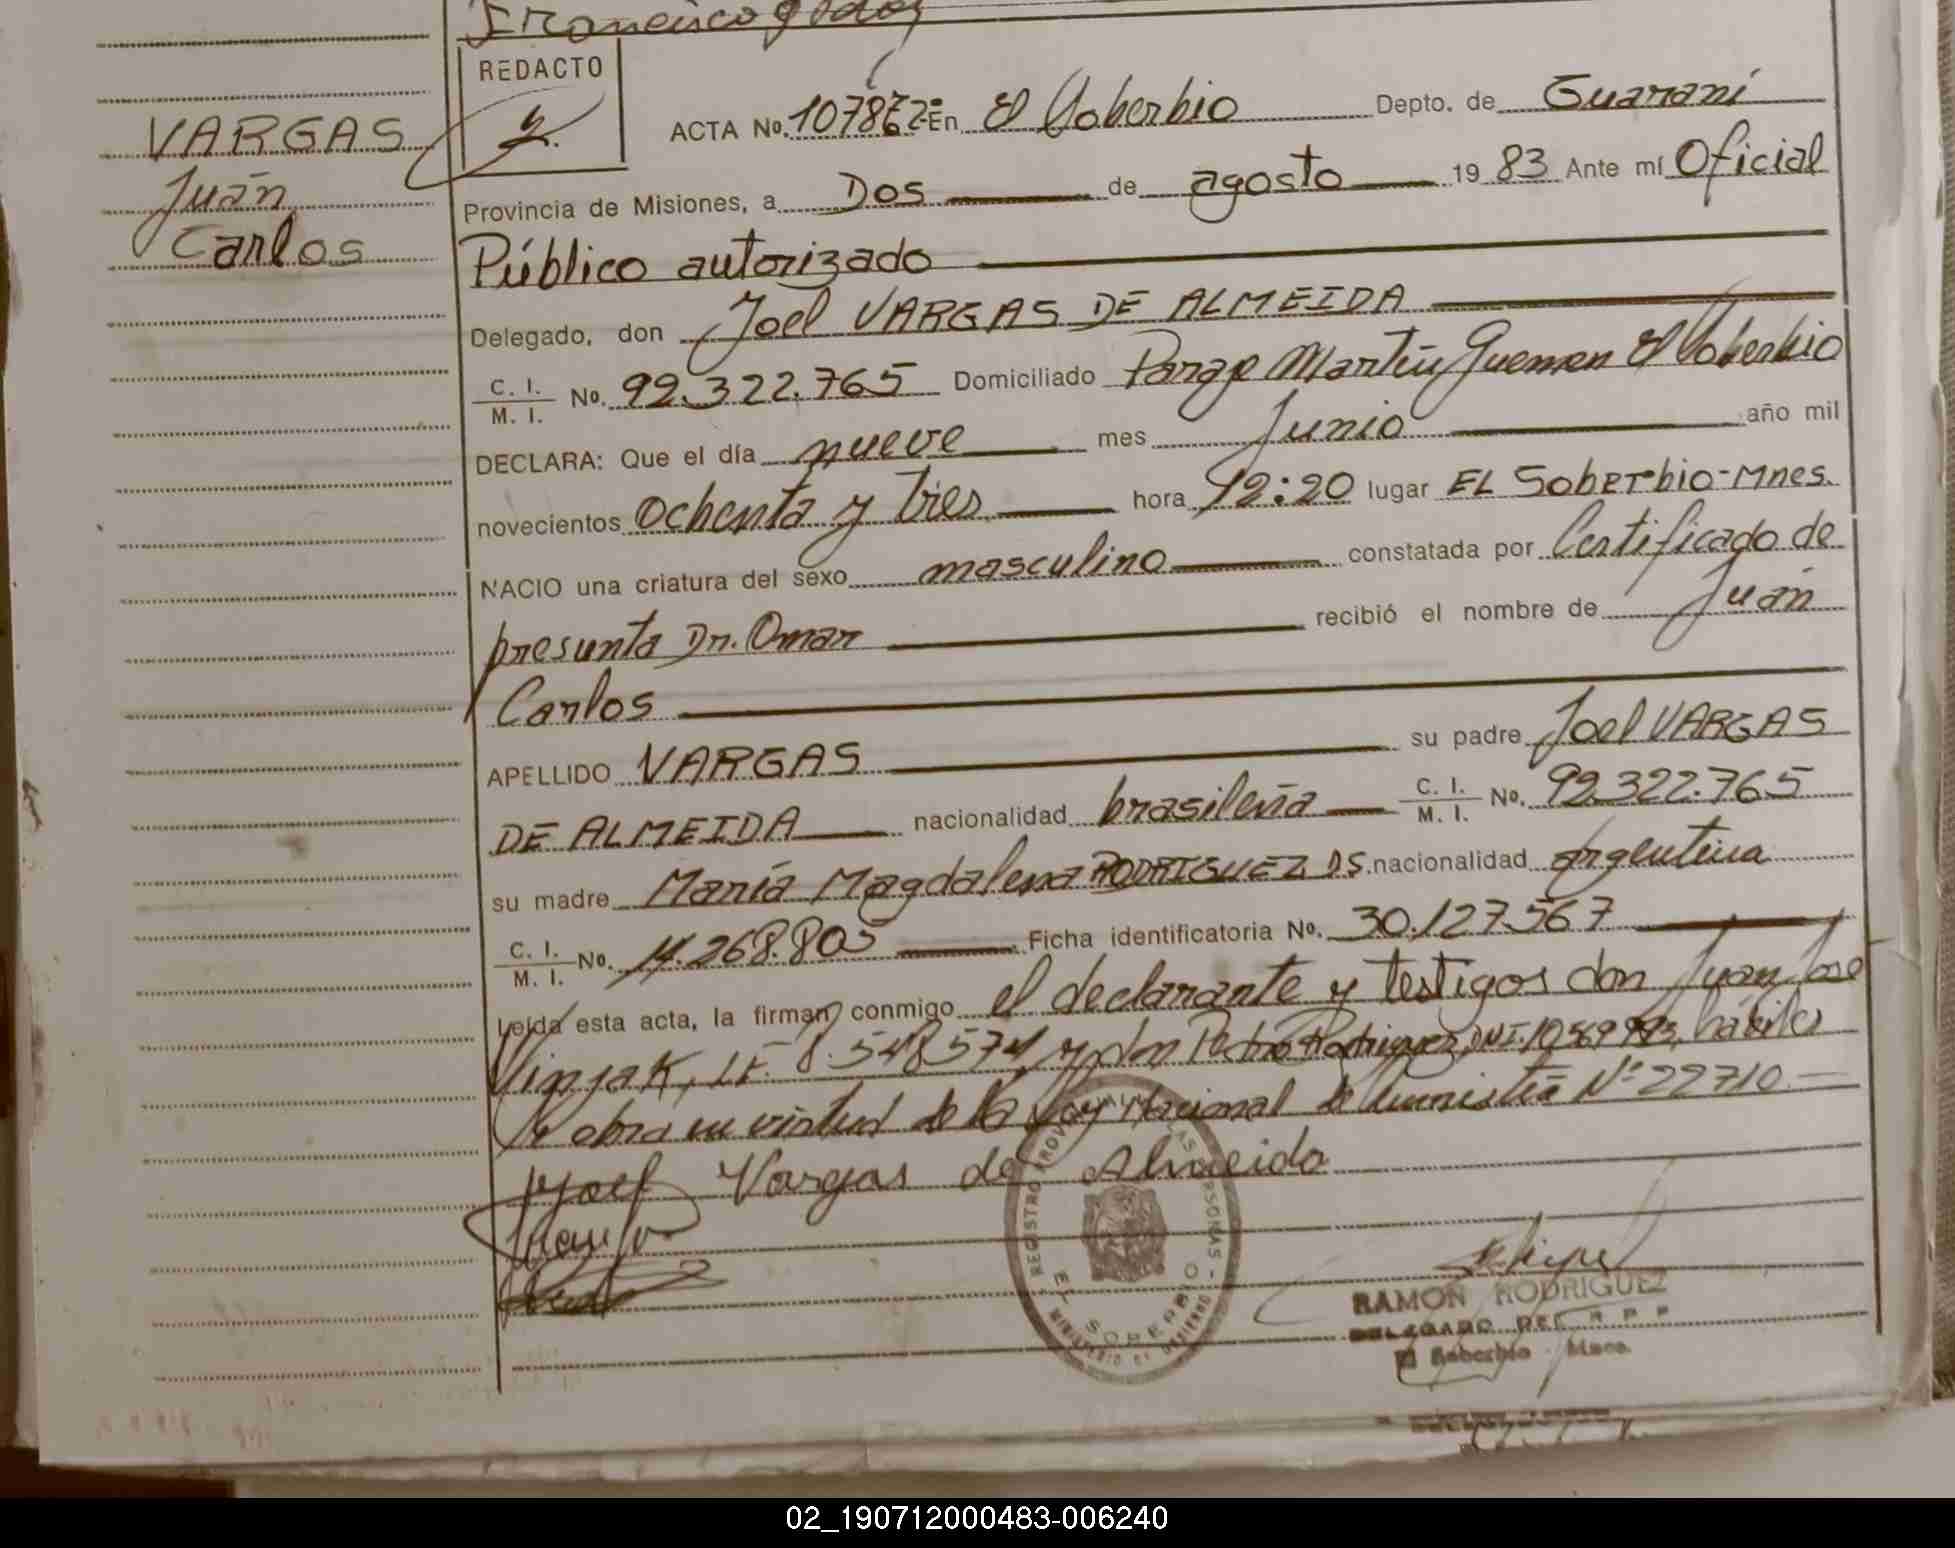 Francisco godoy
REDACTO
VARGAS
Juan
Carlos
ACTA No. En El Soberbio Depto. de Guaraní
Provincia de Misiones, a Dos de agosto 19 83 Ante mí Oficial
Público autorizado
Delegado, don Joel VARGAS DE ALMEIDA
C. I. / M. I. No. 92.322.765 Domiciliado Paraje Martín Guemen El Soberbio
DECLARA: Que el día nueve mes Junio año mil
novecientos ochenta y tres hora 12:20 lugar EL Soberbio-Mnes.
NACIO una criatura del sexo masculino constatada por Certificado de
presunta Dr. Omar recibió el nombre de Juan
Carlos
APELLIDO VARGAS su padre Joel VARGAS
DE ALMEIDA nacionalidad brasileña C. I. / M. I. No. 92.322.765
su madre María Magdalena RODRIGUEZ DS. nacionalidad argentina
C. I. / M. I. No. 14.268.805 Ficha identificatoria No. 30.127.567
Leída esta acta, la firman conmigo el declarante y testigos don Juan José
L.E. 8.548574 y don Pedro Rodriguez, DNI. hábiles
Se obra en virtud de la Ley Nacional de Amnistía Nº 22710.-
Joel Vargas de Almeida
REGISTRO PROVINCIAL DE LAS PERSONAS
EL SOBERBIO
MINISTERIO DE GOBIERNO
RAMON RODRIGUEZ
DELEGADO DEL R P P
El Soberbio - Mnes.
02_190712000483-006240